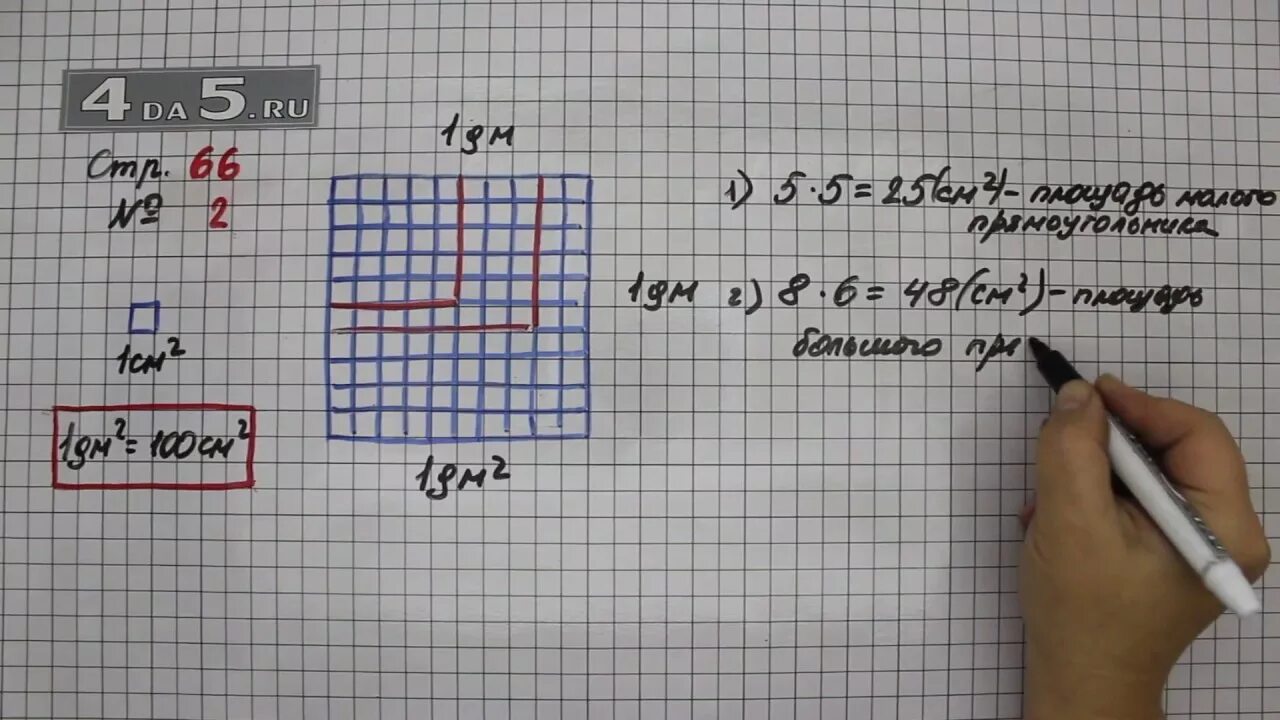 4DA5.RU
Стр. 66
№ 2
1см²
1дм² = 100см²
1дм
1дм
1дм²
1) 5·5=25(см²) - площадь малого
прямоугольника
2) 8·6=48(см²) - площадь
большого пря